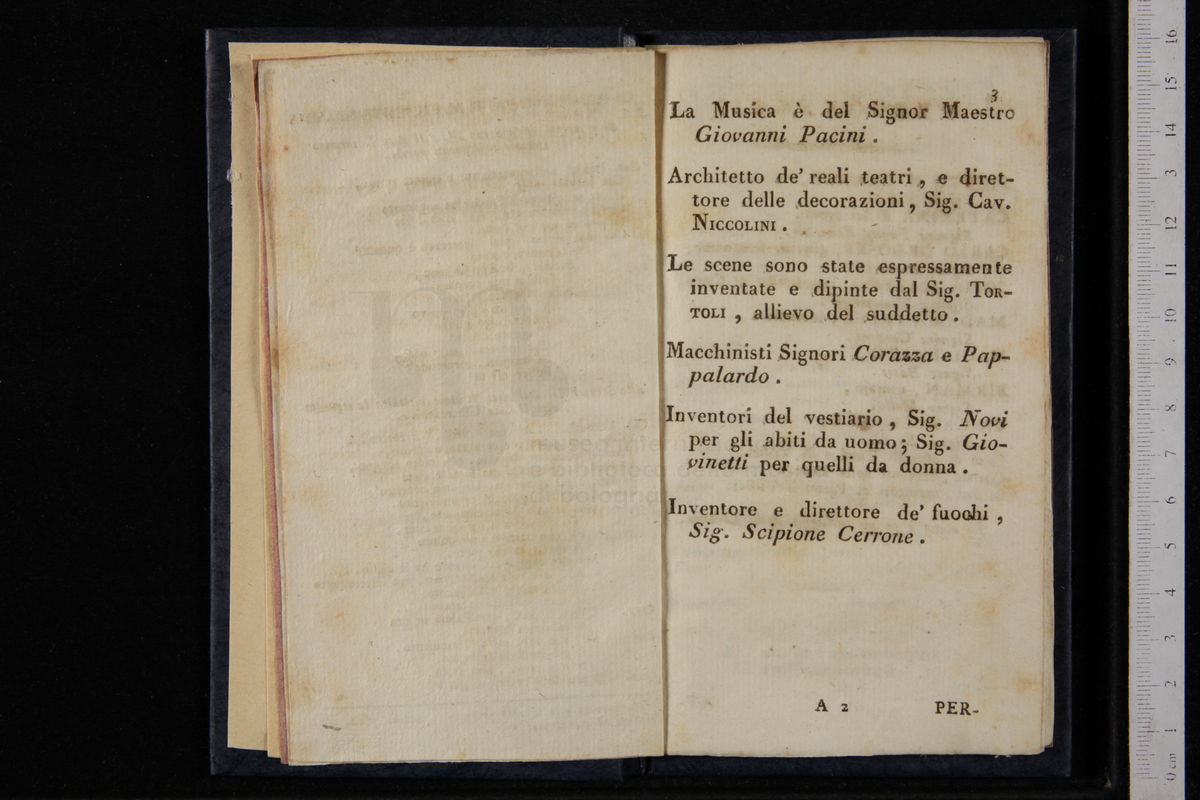 3
La Musica è del Signor Maestro
Giovanni Pacini .
Architetto de' reali teatri , e diret-
tore delle decorazioni , Sig. Cav.
NICCOLINI .
Le scene sono state espressamente
inventate e dipinte dal Sig. TOR-
TOLI , allievo del suddetto .
Macchinisti Signori Corazza e Pap-
palardo .
Inventori del vestiario , Sig. Novi
per gli abiti da uomo ; Sig. Gio-
vinetti per quelli da donna .
Inventore e direttore de' fuochi ,
Sig. Scipione Cerrone .
A 2 PER-
museo
e biblioteca
di bologna
0 cm 1 2 3 4 5 6 7 8 9 10 11 12 13 14 15 16